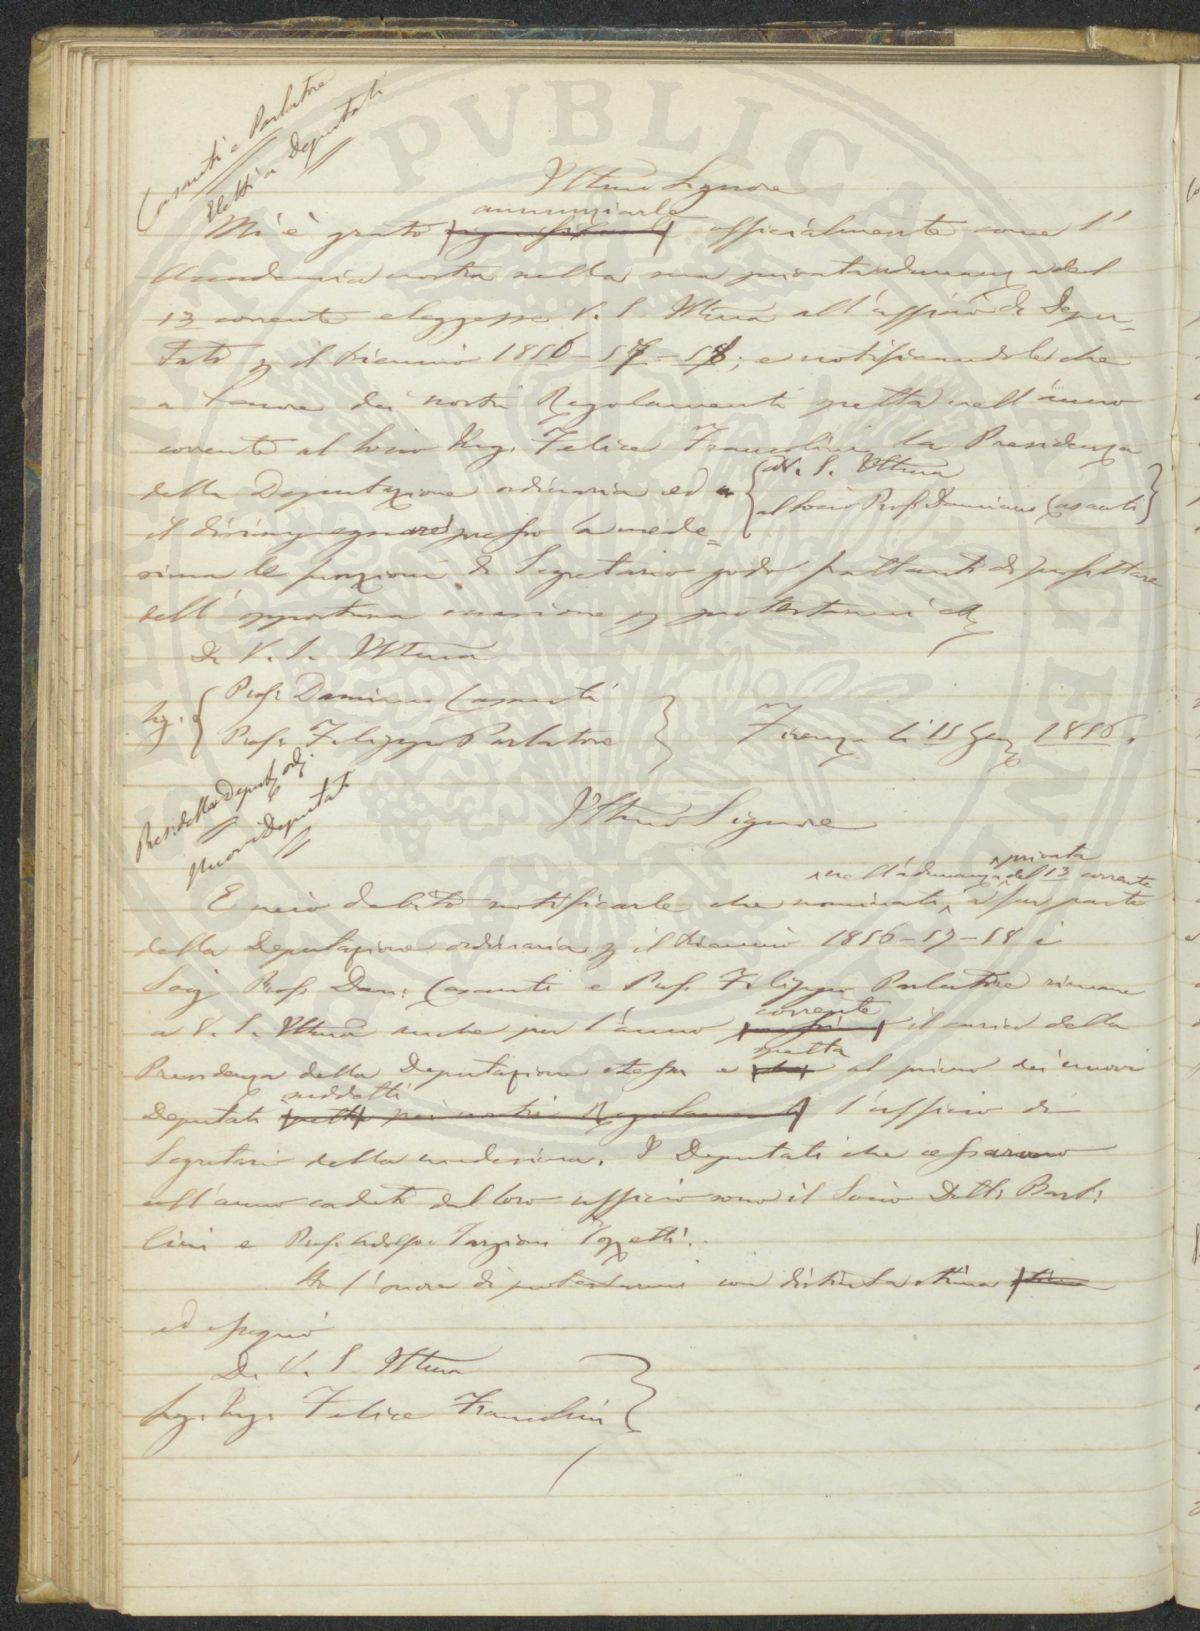 Casanti e Parlatore
Eletti a Deputati
Illmo Signore
annunziarle
Mi è grato significarle officialmente come l'
Accademia nostra nella sua privata adunanza del
13 corrente eleggesse V. S. Illma all'ufficio di Depu=
tato p il triennio 1856-57-58; e notificandole che
a tenore dei nostri Regolamenti spetta nell'anno
corrente al Socio Ing. Felice Francolini la Presidenza
della Deputazione ordinaria ed a { V. S. Illma
al Socio Prof. Damiano Casanti }
il disimpegnare presso la mede=
sima le funzioni di Segretario godo frattanto di profittare
dell'opportuna occasione p protestarmi
Di V. S. Illma
Sig. { Prof. Damiano Casanti
Prof. Filippo Parlatore }
Firenze li 15 Gen 1856.
Pres: della Deputaz ord.
Nuovi Deputati
Illmo Signore
nell'adunanza privata del 13 corrente
È mio debito notificarle che nominati a far parte
della Deputazione ordinaria p il triennio 1856-57-58 i
Socj Prof. Dam: Casanti e Prof. Filippo Parlatore rimane
corrente
a V. S. Illma anche per l'anno il carico della
spetta
Presidenza della Deputazione stessa e al primo dei nuovi
suddetti
Deputati pei nostri Regolamenti l'ufficio di
Segretario della medesima. I Deputati che cessarono
nell'anno caduto dal loro ufficio sono il Socio Dott. Barto=
lini e Prof. Adolfo Targioni Tozzetti.
Ho l'onore di protestarmi con distinta stima
ed ossequio
Di V. S. Illma
Sig. Ing. Felice Francolini }